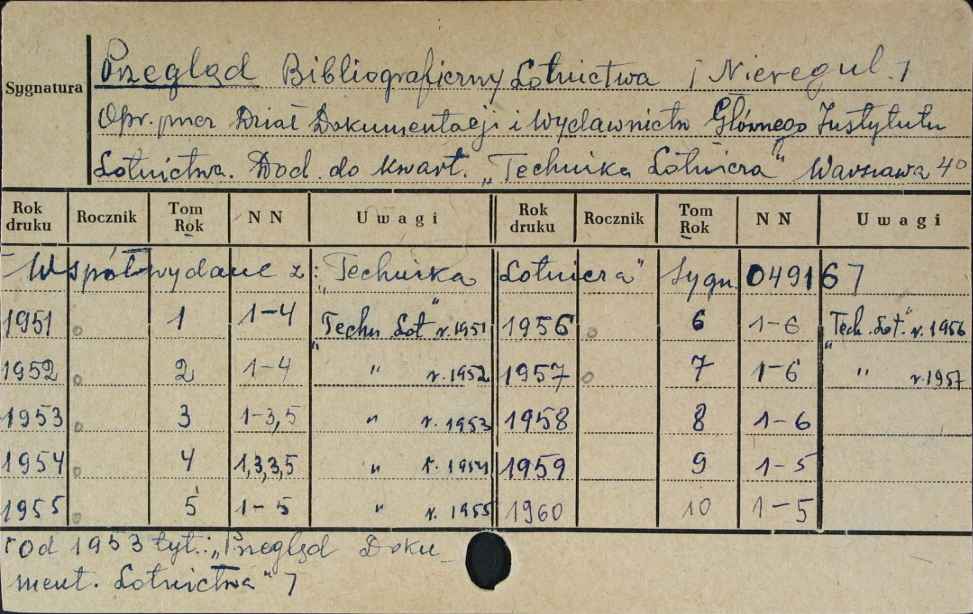 Sygnatura
Przegląd Bibliograficzny Lotnictwa / Nieregul. /
Opr. przez Dział Dokumentacji i Wydawnictw Głównego Instytutu
Lotnictwa. Dod. do kwart. „Technika Lotnicza" Warszawa 4°
Rok druku Rocznik Tom Rok NN Uwagi Rok druku Rocznik Tom Rok NN Uwagi
Współwydane z: „Technika Lotnicza" Sygn. 049167
1951 1 1-4 „Techn. Lot" r. 1951 1956 6 1-6 „Tech. Lot." r. 1956
1952 2 1-4 " r. 1952 1957 7 1-6 " r. 1957
1953 3 1-3,5 " r. 1953 1958 8 1-6
1954 4 1,3,3,5 " r. 1954 1959 9 1-5
1955 5 1-5 " r. 1955 1960 10 1-5
[od 1953 tyt.: „Przegląd Doku
ment. Lotnictwa" ]